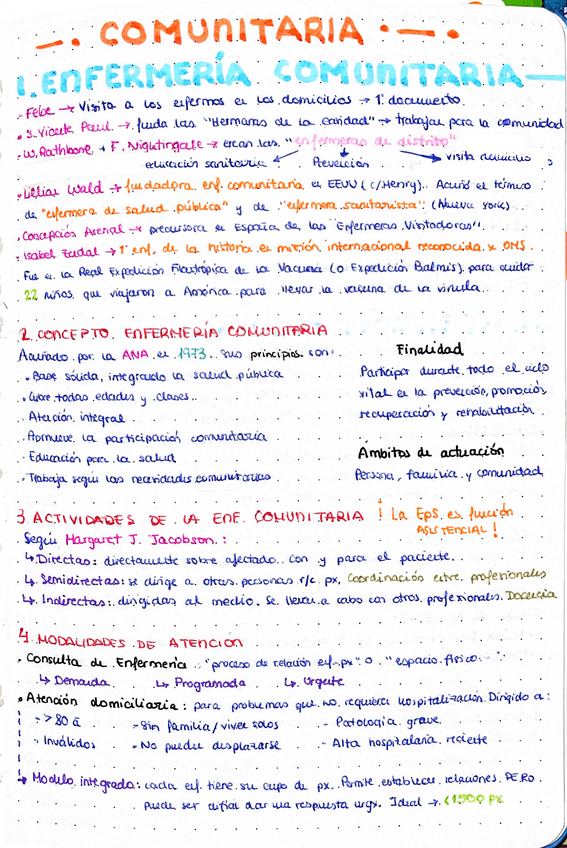 —. COMUNITARIA .—.
1. ENFERMERÍA COMUNITARIA
· Febe → Visita a los enfermos en los domicilios → 1º documento.
· S. Vicente Paul → funda las "Hermanas de la caridad" → trabajan para la comunidad
· W. Rathbone + F. Nightingale → crean las "enfermeras de distrito"
educación sanitaria Prevención visita domicilio
· Lilian Wald → fundadora enf. comunitaria en EEUU (c/Henry). Acuñó el término
de "enfermera de salud pública" y de "enfermera sanitarista" (Nueva York)
· Concepción Arenal → precursora en España de las "Enfermeras Visitadoras".
· Isabel Zendal → 1ª enf. de la historia en misión internacional reconocida x OMS.
Fue en la Real Expedición Filantrópica de la Vacuna (o Expedición Balmis) para cuidar
22 niños que viajaron a América para llevar la vacuna de la viruela.
2. CONCEPTO ENFERMERÍA COMUNITARIA
por la ANA en 1973. Sus principios son:
· Base sólida, integrando la salud pública
· Cubre todas edades y clases.
· Atención integral
· Promueve la participación comunitaria
- Educación para la salud
· Trabaja según las necesidades comunitarias
Finalidad
Participar durante todo el ciclo
vital en la prevención, promoción,
recuperación y rehabilitación
Ámbitos de actuación
Persona, familia y comunidad
3 ACTIVIDADES DE LA ENF. COMUNITARIA
! La EpS es función
ASISTENCIAL!
Según Margaret J. Jacobson:
↳ Directas: directamente sobre afectado. Con y para el paciente.
↳ Semidirectas: se dirige a otras personas r/c px. Coordinación entre profesionales
↳ Indirectas: dirigidas al medio. Se llevan a cabo con otros profesionales. Docencia
4. MODALIDADES DE ATENCIÓN
· Consulta de Enfermería: "proceso de relación enf-px" o "espacio físico"
↳ Demanda ↳ Programada ↳ Urgente
· Atención domiciliaria: para problemas que no requieren hospitalización. Dirigido a:
- >80 a - Sin familia/viven solos - Patología grave
- Inválidos - No pueden desplazarse - Alta hospitalaria reciente
↳ Modulo integrado: cada enf. tiene su cupo de px. Permite establecer relaciones. PERO
puede ser difícil dar una respuesta urgx. Ideal → <1500 px